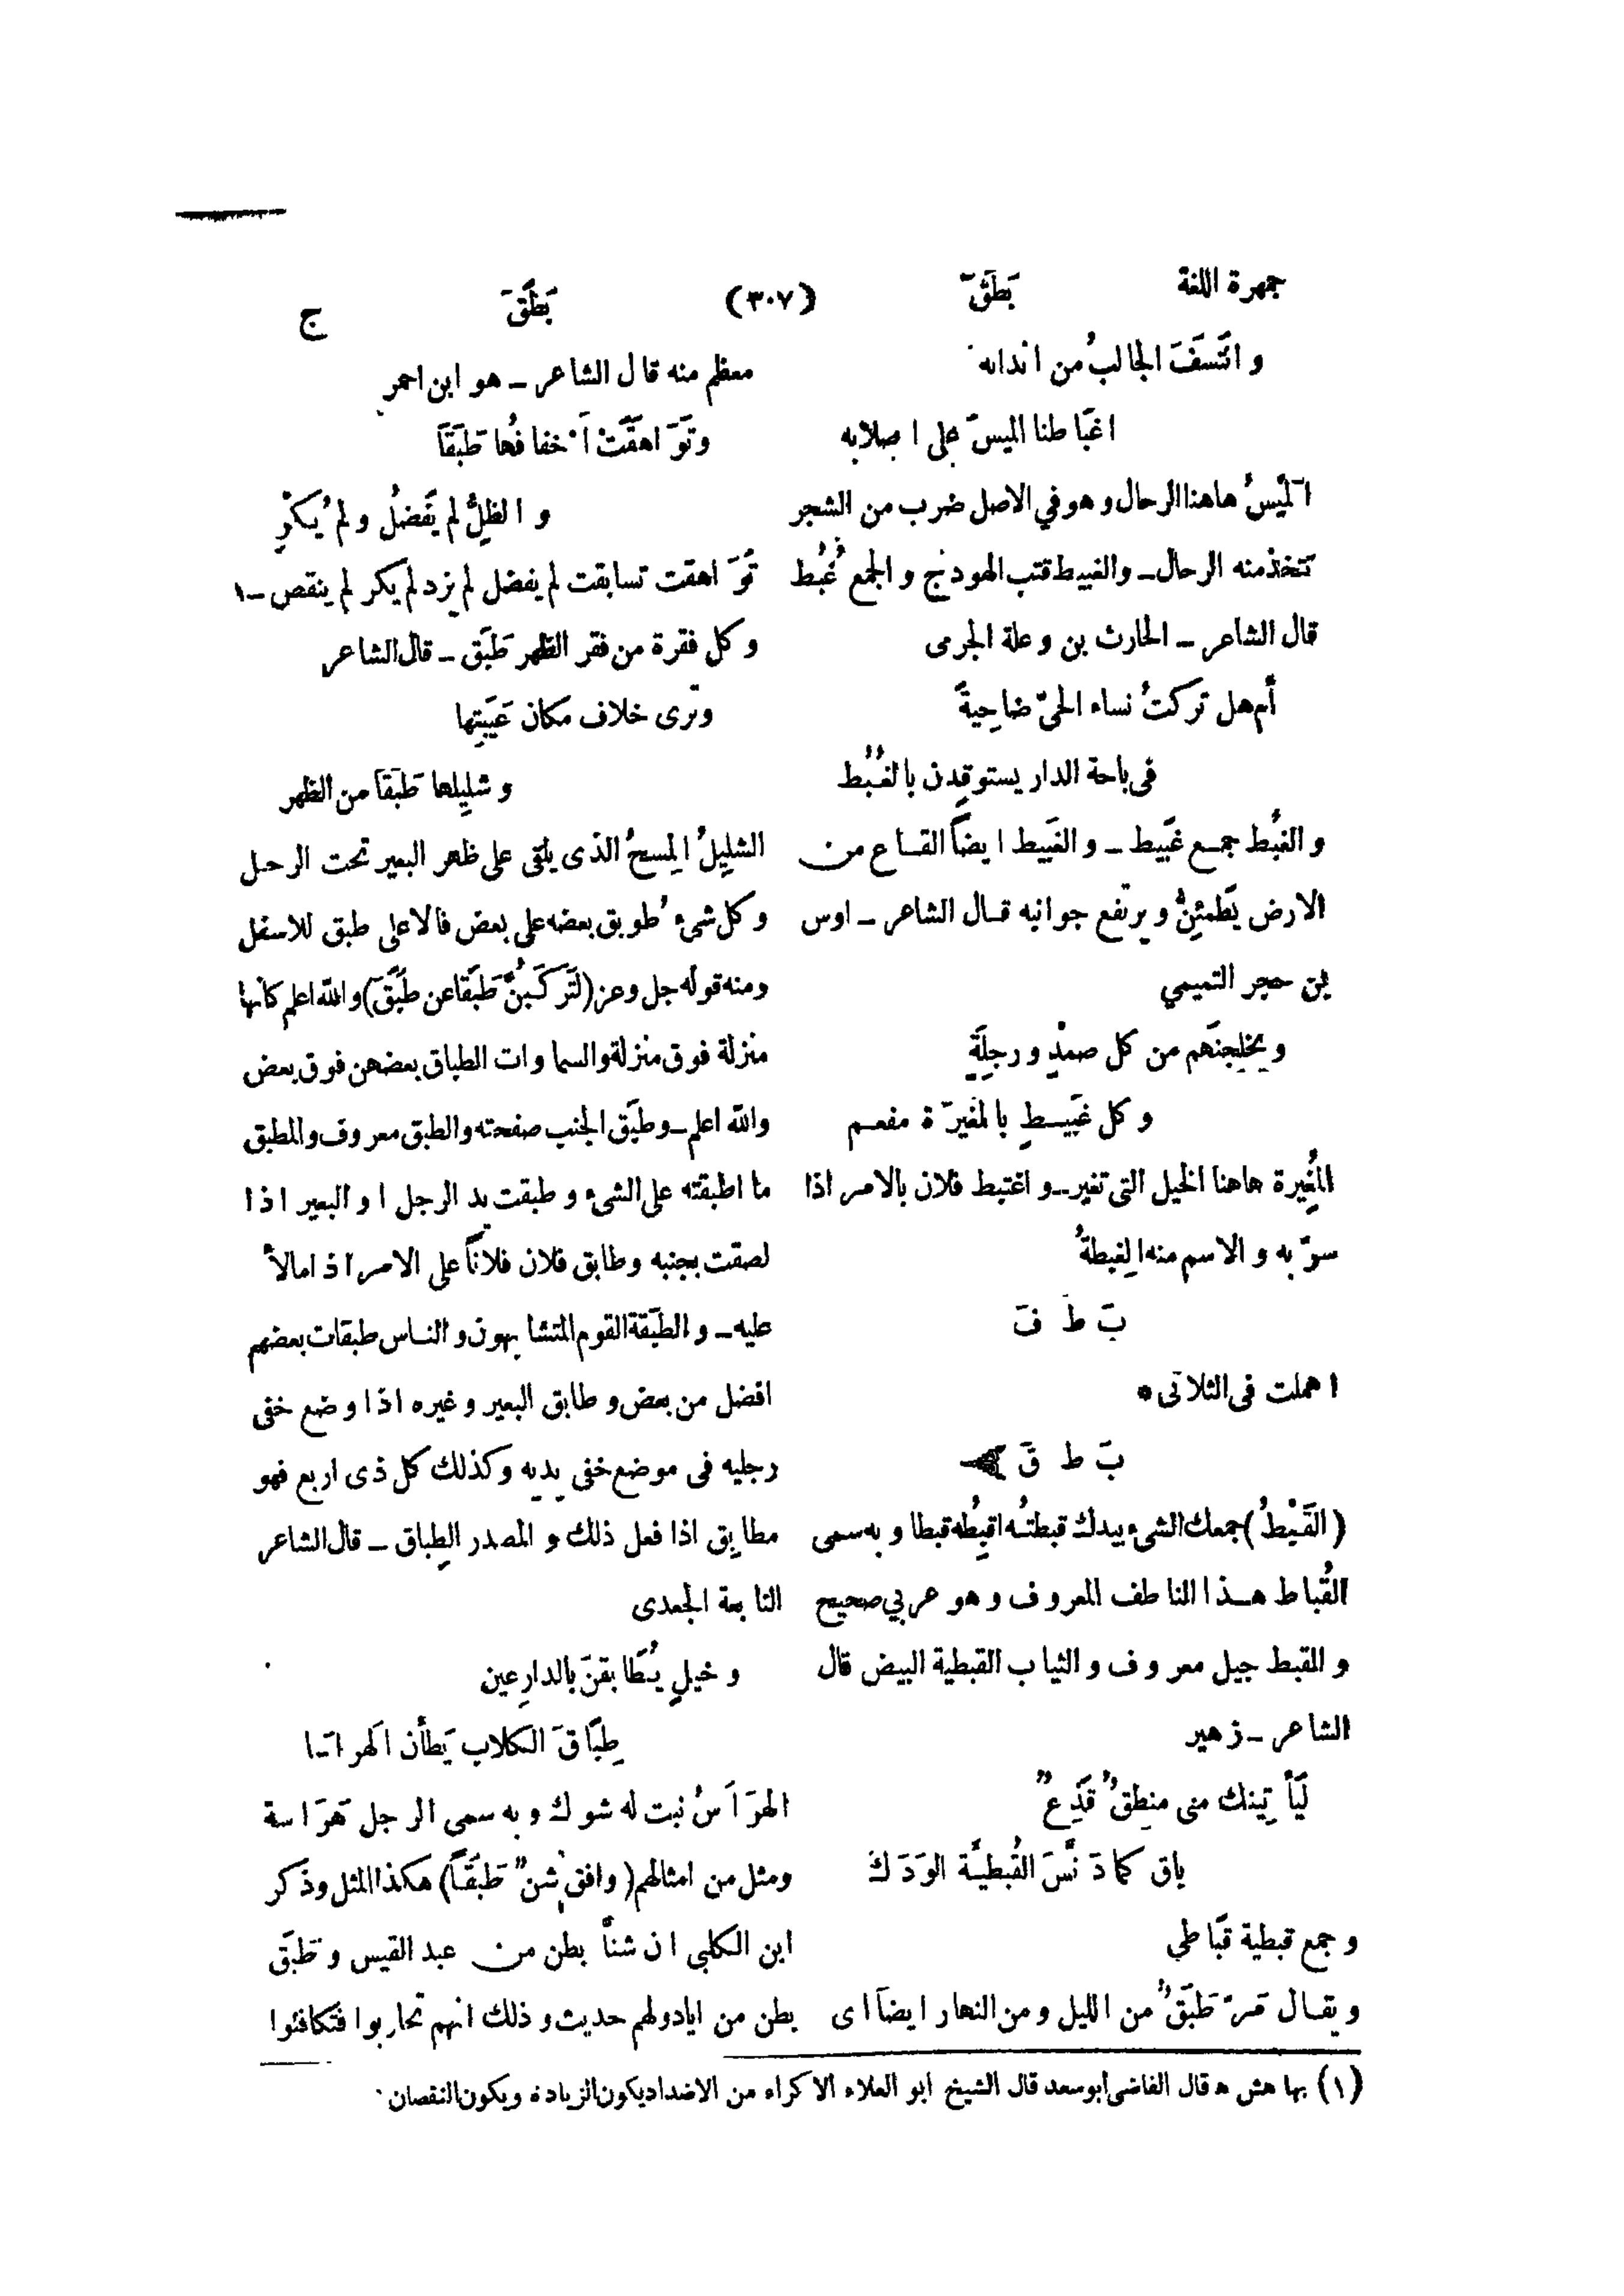 جمهرة اللغة بَطَقَ (٣٠٧) بَطَقَ ج
و انتَسَفَ الجالبُ من اندابه
اغبَا طنا الميسَ على ا صلابه
المَيسُ هاهنا الرحال و هو في الاصل ضرب من الشجر
تتخذ منه الرحال ــ والغبيط قتب الهودج و الجمع غُبُط
قال الشاعر ــ الحارث بن وعلة الجرمى
أم هل تركتُ نساء الحيّ ضاحِيةً
فى باحة الدار يستوقِدن بالغُبُط
و الغبُط جمع غَبيط ــ و الغَبيط ايضاً القاع من
الارض يَطمئِنُّ و يرتفع جوانبه قال الشاعر ــ اوس
بن حجر التميمي
و يخلِجنَهم من كل صمْدٍ و رجلَةٍ
و كل غَبيطٍ بالمغيرَة مفعم
المُغِيرة هاهنا الخيل التى تغير ــ و اغتبط فلان بالامر اذا
سرّ به و الاسم منه الغِبطةُ
بَ ط فَ
اهملت فى الثلاثى *
بَ ط قَ
(القَبْطُ) جمعك الشىء بيدك قبطتُه اقبِطُه قبطا و به سمى
القُباط هذا الناطف المعروف و هو عربي صحيح
و القبط جيل معروف و الثياب القبطية البيض قال
الشاعر ــ زهير
لَيَأ تِينك منى منطِقٌ قَذِعٌ
باق كما دَ نَّسَ القُبطيَّة الوَدَ كَ
و جمع قبطية قبَاطي
و يقال مَرّ طَبَقٌ من الليل و من النهار ايضاً اى
معظم منه قال الشاعر ــ هو ابن احمر
وتَوَ اهقَتْ أَ خفا فُها طَبَقاً
و الظلُّ لم يَفضُلْ و لم يُكرِ
تَوَ اهقت تسابقت لم يفضل لم يزد لم يكر لم ينقص ــ ١
و كل فقرة من فقر الظهر طَبَق ــ قال الشاعر
وترى خلاف مكان غَيبَتِها
و شليلها طَبَقاً من الظهر
الشليلُ المِسحُ الذى يلقى على ظهر البعير تحت الرحل
و كل شىء طوبق بعضه على بعض فالاعلى طبق للاسفل
ومنه قوله جل وعز (لَتَركَبُنَّ طَبَقًا عن طَبَقَ) والله اعلم كأنها
منزلة فوق منزلة والسماوات الطباق بعضهن فوق بعض
والله اعلم ــ وطبَق الجنب صفحته والطبق معروف والمطبق
ما اطبقته على الشىء و طبقت يد الرجل ا و البعير اذا
لصقت بجنبه و طابق فلان فلاناً على الامر اذ امالأ
عليه ــ و الطبَقة القوم المتشابهون و الناس طبقات بعضهم
افضل من بعض و طابق البعير و غيره اذا وضع خفى
رجليه فى موضع خفى يديه و كذلك كل ذى اربع فهو
مطابِق اذا فعل ذلك و المصدر الطِباق ــ قال الشاعر
النابغة الجعدى
و خيلٍ يُطَا بقنَ بالدارِعين
طِبَاقَ الكلاب يَطأن الهراسَا
الهَرَ اسُ نبت له شوك و به سمى الرجل هَرَ اسة
ومثل من امثالهم (وافق شنٌّ طَبَقَاً) هكذا المثل وذكر
ابن الكلبى ان شناً بطن من عبد القيس و طَبَق
بطن من اياد ولهم حديث و ذلك انهم تحاربوا فتكافئوا
(١) بهامش ه قال القاضى ابو سعد قال الشيخ ابو العلاء الاكراء من الاضداد يكون الزيادة و يكون النقصان